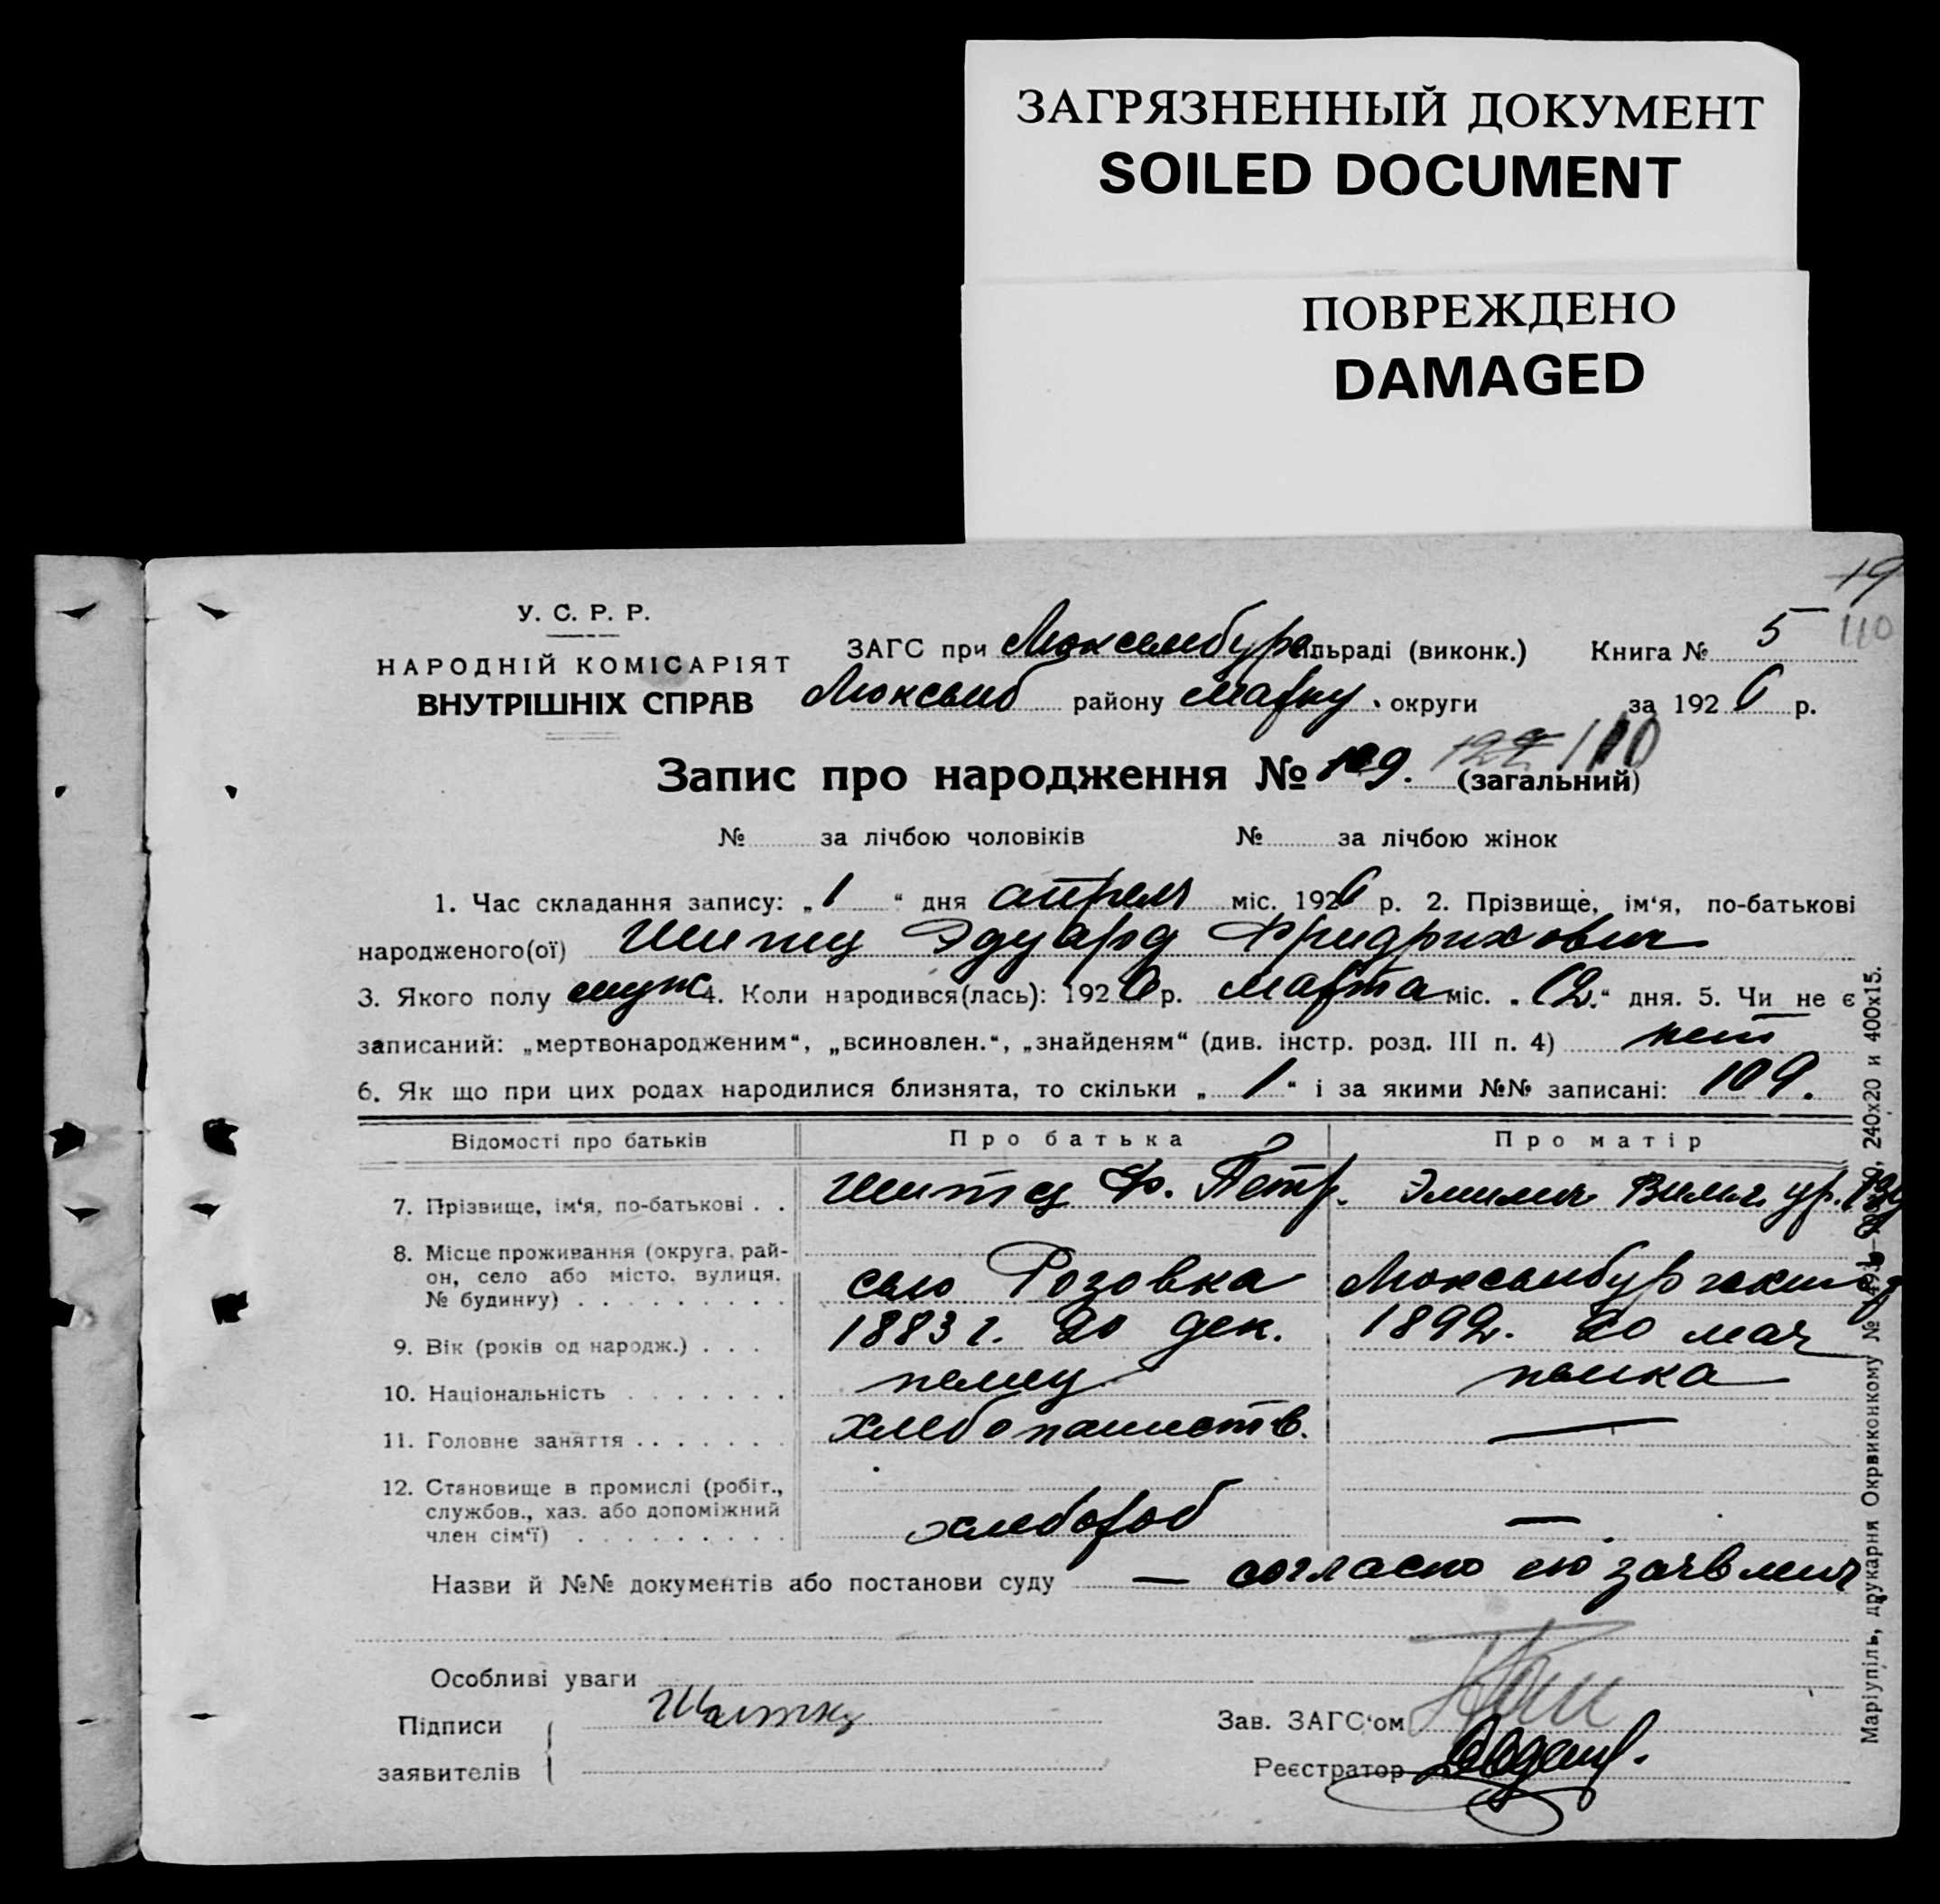 ЗАГРЯЗНЕННЫЙ ДОКУМЕНТ
SOILED DOCUMENT
ПОВРЕЖДЕНО
DAMAGED
19
110
У. С. Р. Р.
НАРОДНІЙ КОМІСАРІЯТ
ВНУТРІШНІХ СПРАВ
ЗАГС при Люксембург. сільраді (виконк.) Книга № 5
Люксемб району Мариу. округи за 1926 р.
Запис про народження № 109. 110 (загальний)
№ за лічбою чоловіків № за лічбою жінок
1. Час складання запису: „1“ дня апреля міс. 1926 р. 2. Прізвище, ім‘я, по-батькові
народженого(ої) Шитц Эдуард Фридрихович
3. Якого полу муж 4. Коли народився(лась): 1926 р. марта міс. „12.“ дня. 5. Чи не є
записаний: „мертвонародженим“, „всиновлен.“, „знайденям“ (див. інстр. розд. III п. 4) нет
6. Як що при цих родах народилися близнята, то скільки „1“ і за якими №№ записані: 109.
Відомості про батьків Про батька Про матір
7. Прізвище, ім‘я, по-батькові . . Шитц Ф. Петр. Эмилия Вильг. ур.
8. Місце проживання (округа, рай-
он, село або місто, вулиця,
№ будинку) . . . . . . . . . село Розовка Люксембург
9. Вік (років од народж.) . . . 1883 г. 20 дек. 1892. 20 мая
10. Національність . . . . . . . немец немка
11. Головне заняття . . . . . . . хлебопашеств. —
12. Становище в промислі (робіт.,
службов., хаз. або допоміжний
член сім‘ї) . . . . . . . . . хлебороб —
Назви й №№ документів або постанови суду — согласно его заявления
Особливі уваги
Підписи
заявителів
Зав. ЗАГС‘ом
Реєстратор
Маріупіль, друкарня Окрвиконкому № 240х20 и 400х15.